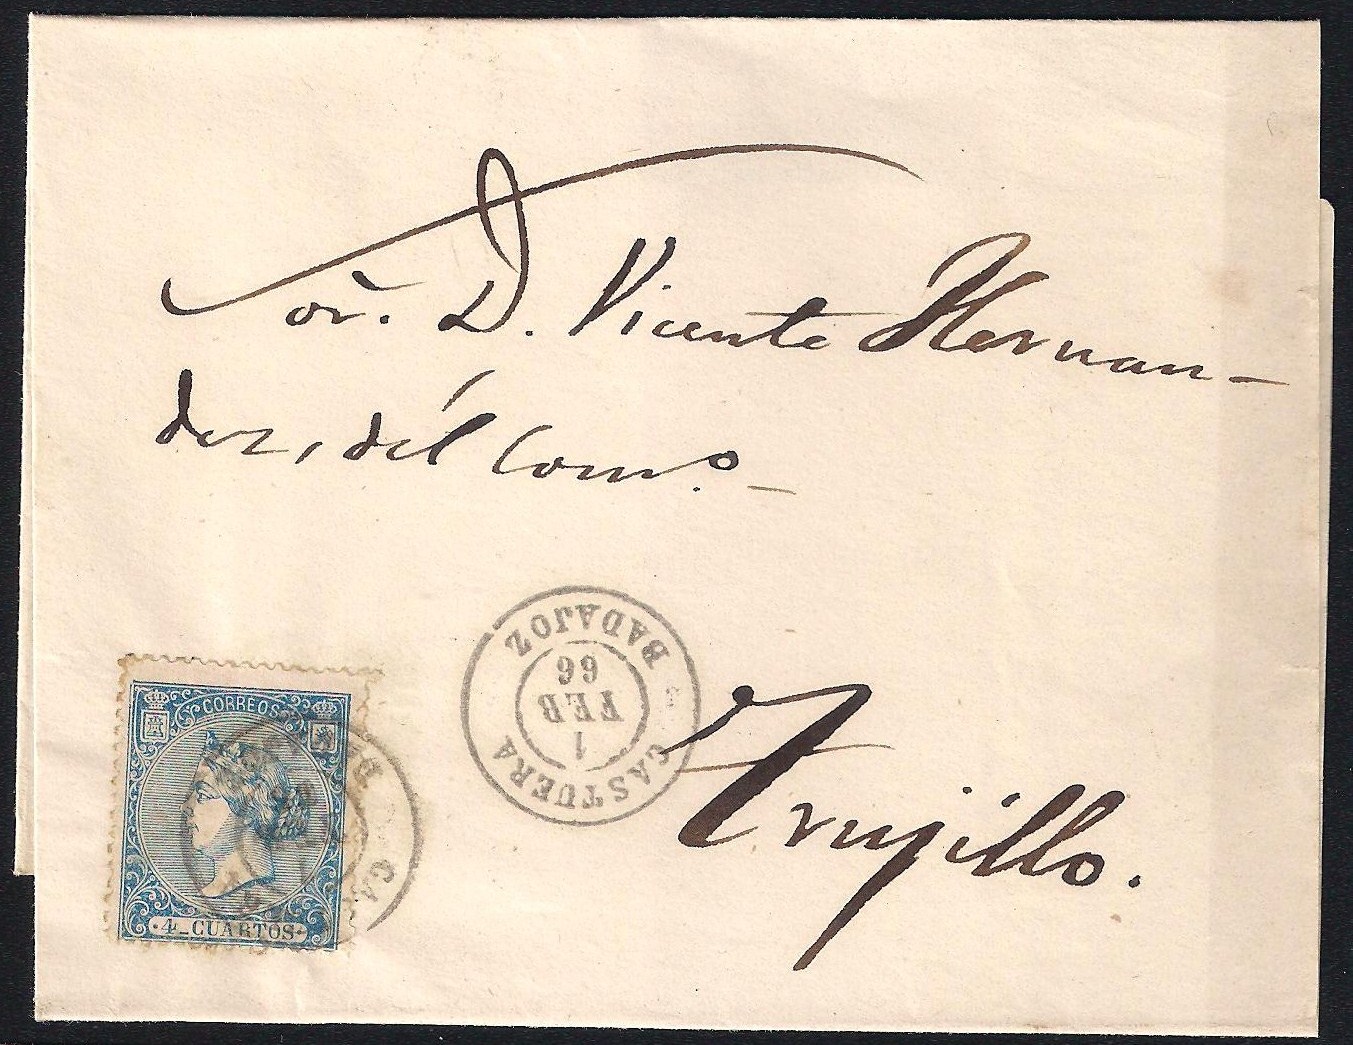 Sor. D. Vicente Hernan-
dez, del Como.
Trujillo.
CASTUERA
1
FEB
66
BADAJOZ
CORREOS
4 CUARTOS
CA